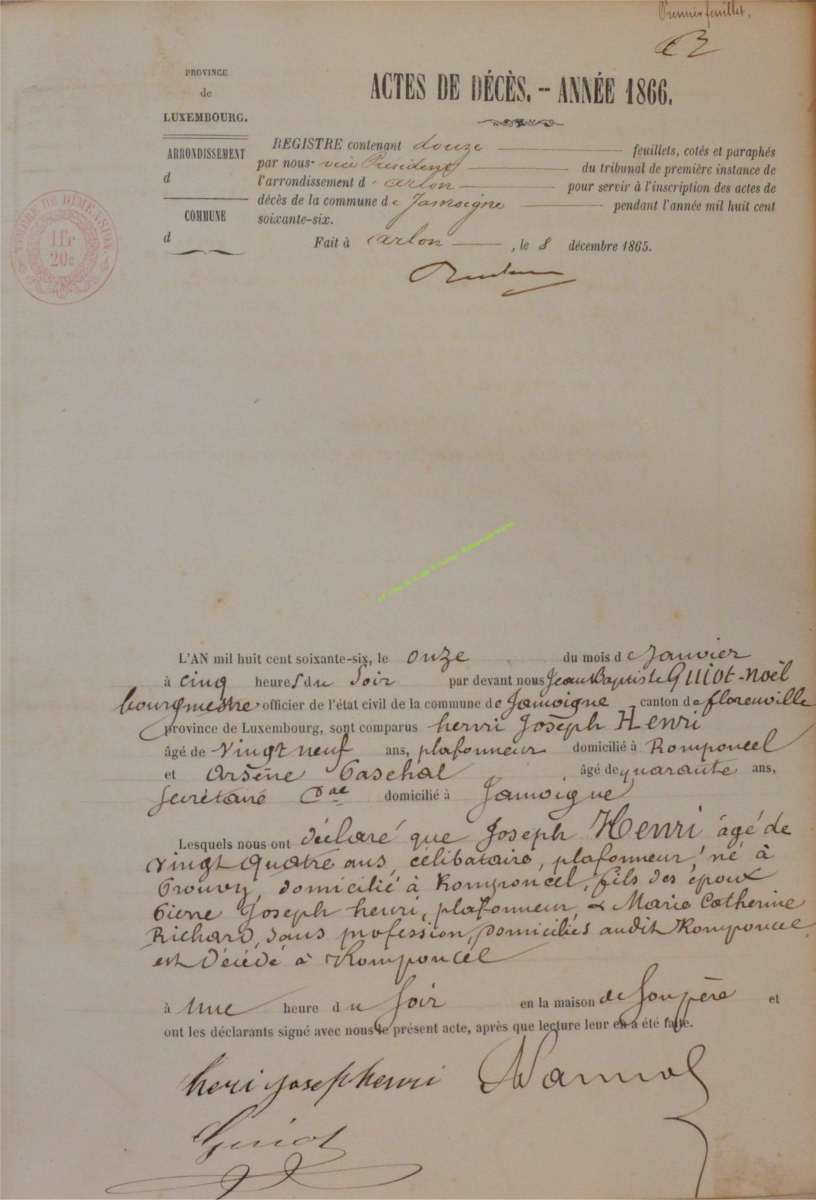 Premier feuillet.
PROVINCE
de
LUXEMBOURG.
ARRONDISSEMENT
d
COMMUNE
d
TIMBRE DE DIMENSION
1Fr
20c
ACTES DE DÉCÈS. -- ANNÉE 1866.
REGISTRE contenant douze feuillets, cotés et paraphés
par nous vice Président du tribunal de première instance de
l'arrondissement d'arlon pour servir à l'inscription des actes de
décès de la commune de Jamoigne pendant l'année mil huit cent
soixante-six.
Fait à arlon, le 8 décembre 1865.
L'AN mil huit cent soixante-six, le onze du mois de Janvier
à cinq heures du Soir par devant nous Jean Baptiste Guiot-Noël
bourgmestre officier de l'état civil de la commune de Jamoigne canton de florenville
province de Luxembourg, sont comparus henri Joseph Henri
âgé de vingt neuf ans, plafonneur domicilié à Romponcel
et Arsène Paschal âgé de quarante ans,
Secrétaire Cal domicilié à Jamoigne
Lesquels nous ont déclaré que Joseph Henri âgé de
vingt quatre ans, célibataire, plafonneur, né à
Prouvy, domicilié à Romponcel, fils des époux
Pierre Joseph henri, plafonneur & Marie Catherine
Richard, sans profession, domiciliés audit Romponcel
est décédé à Romponcel
à une heure du Soir en la maison de son père et
ont les déclarants signé avec nous le présent acte, après que lecture leur en a été faite.
heri joseph henri
Guiot